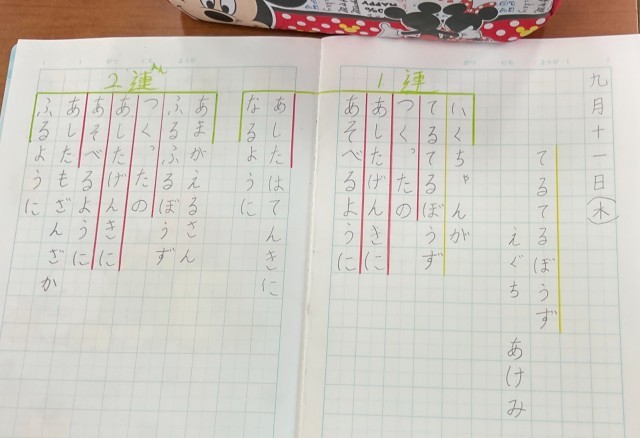 九月十一日(木)
てるてるぼうず
えぐち あけみ
1連
いくちゃんが
てるてるぼうず
つくったの
あしたげんきに
あそべるように
あしたはてんきに
なるように
2連
あまがえるさん
ふるふるぼうず
つくったの
あしたげんきに
あそべるように
あしたもざんざか
ふるように
HAPPY